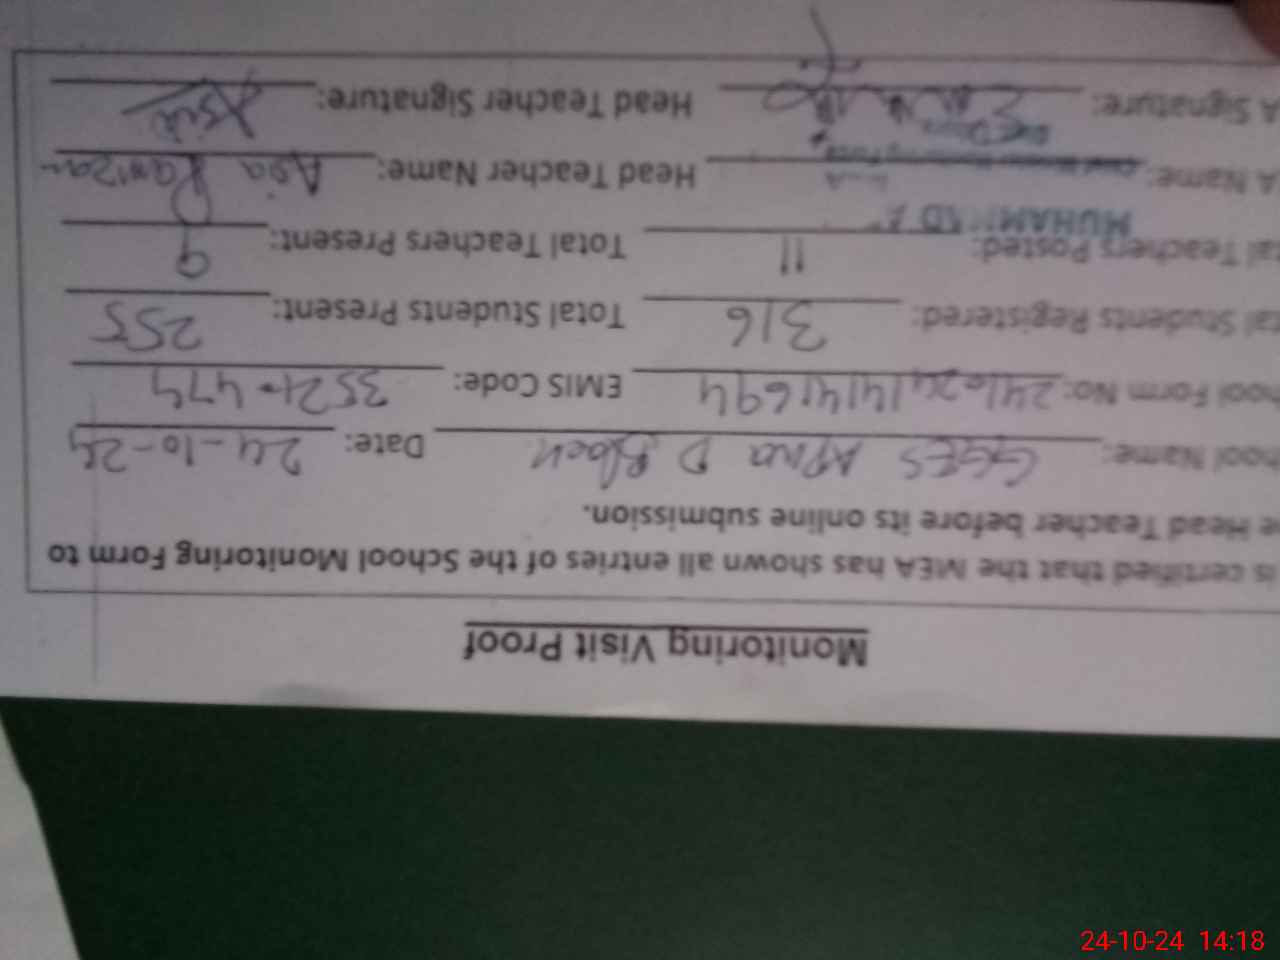 Monitoring Visit Proof
is certified that the MEA has shown all entries of the School Monitoring Form to
e Head Teacher before its online submission.
hool Name: GGES APWA D Block Date: 24-10-24
hool Form No: EMIS Code:
tal Students Registered: 316 Total Students Present: 255
tal Teachers Posted: 11 Total Teachers Present: 9
MUHAMM
A Name: Head Teacher Name: Asia Ramzan
A Signature: Head Teacher Signature: Asia
24-10-24 14:18